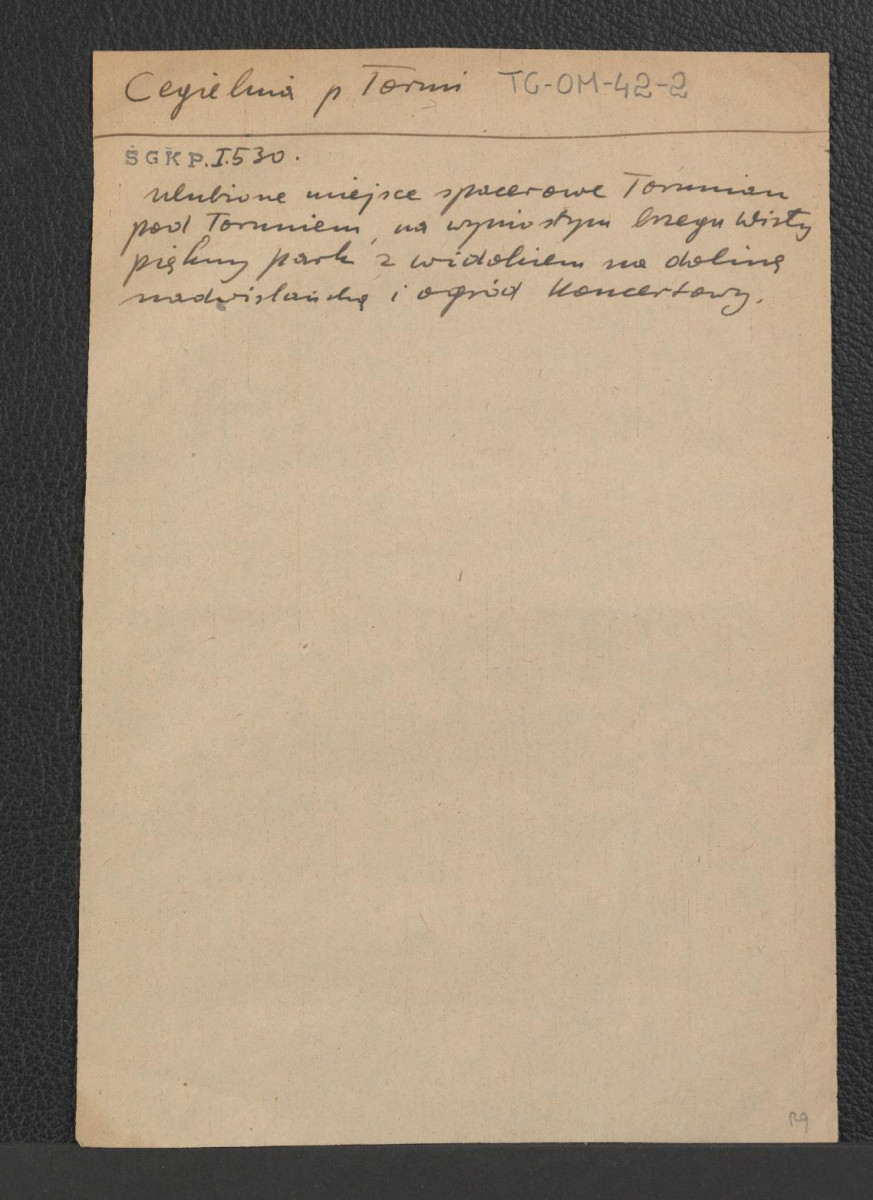 Cegielnia p Toruń TG-OM-42-2
SGKP.I.530.
ulubione miejsce spacerowe Torunian
pod Toruniem, na wyniosłym brzegu Wisły
piękny park z widokiem na dolinę
nadwiślańską i ogród koncertowy.